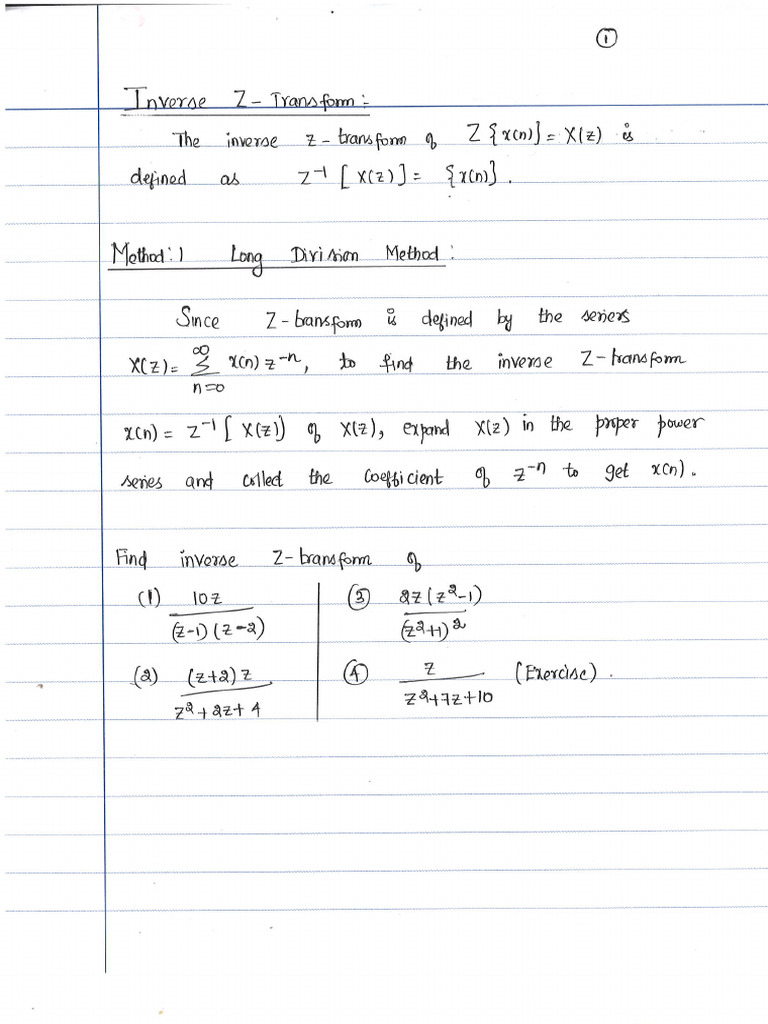 ①
Inverse Z-Transform:-
The inverse z-transform of Z{x(n)} = X(z) is
defined as Z⁻¹[X(z)] = {x(n)}.
Method:1 Long Division Method:
Since Z-transform is defined by the seriers
X(z) = ∞Σn=0 x(n) z⁻ⁿ, to find the inverse Z-transform
x(n) = Z⁻¹[X(z)] of X(z), expand X(z) in the proper power
series and collect the coefficient of z⁻ⁿ to get x(n).
Find inverse Z-transform of
(1) 10z / (z-1)(z-2)
(2) (z+2)z / z²+2z+4
③ 2z(z²-1) / (z²+1)²
④ z / z²+7z+10 (Exercise).